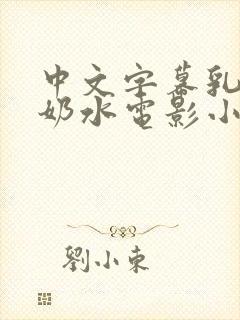 中文字幕乳
奶水电影小
劉小東